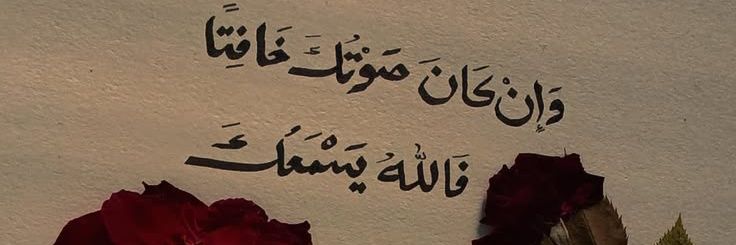 وَإِنْ كَانَ صَوْتُكَ خَافِتًا
فَاللهُ يَسْمَعُكَ